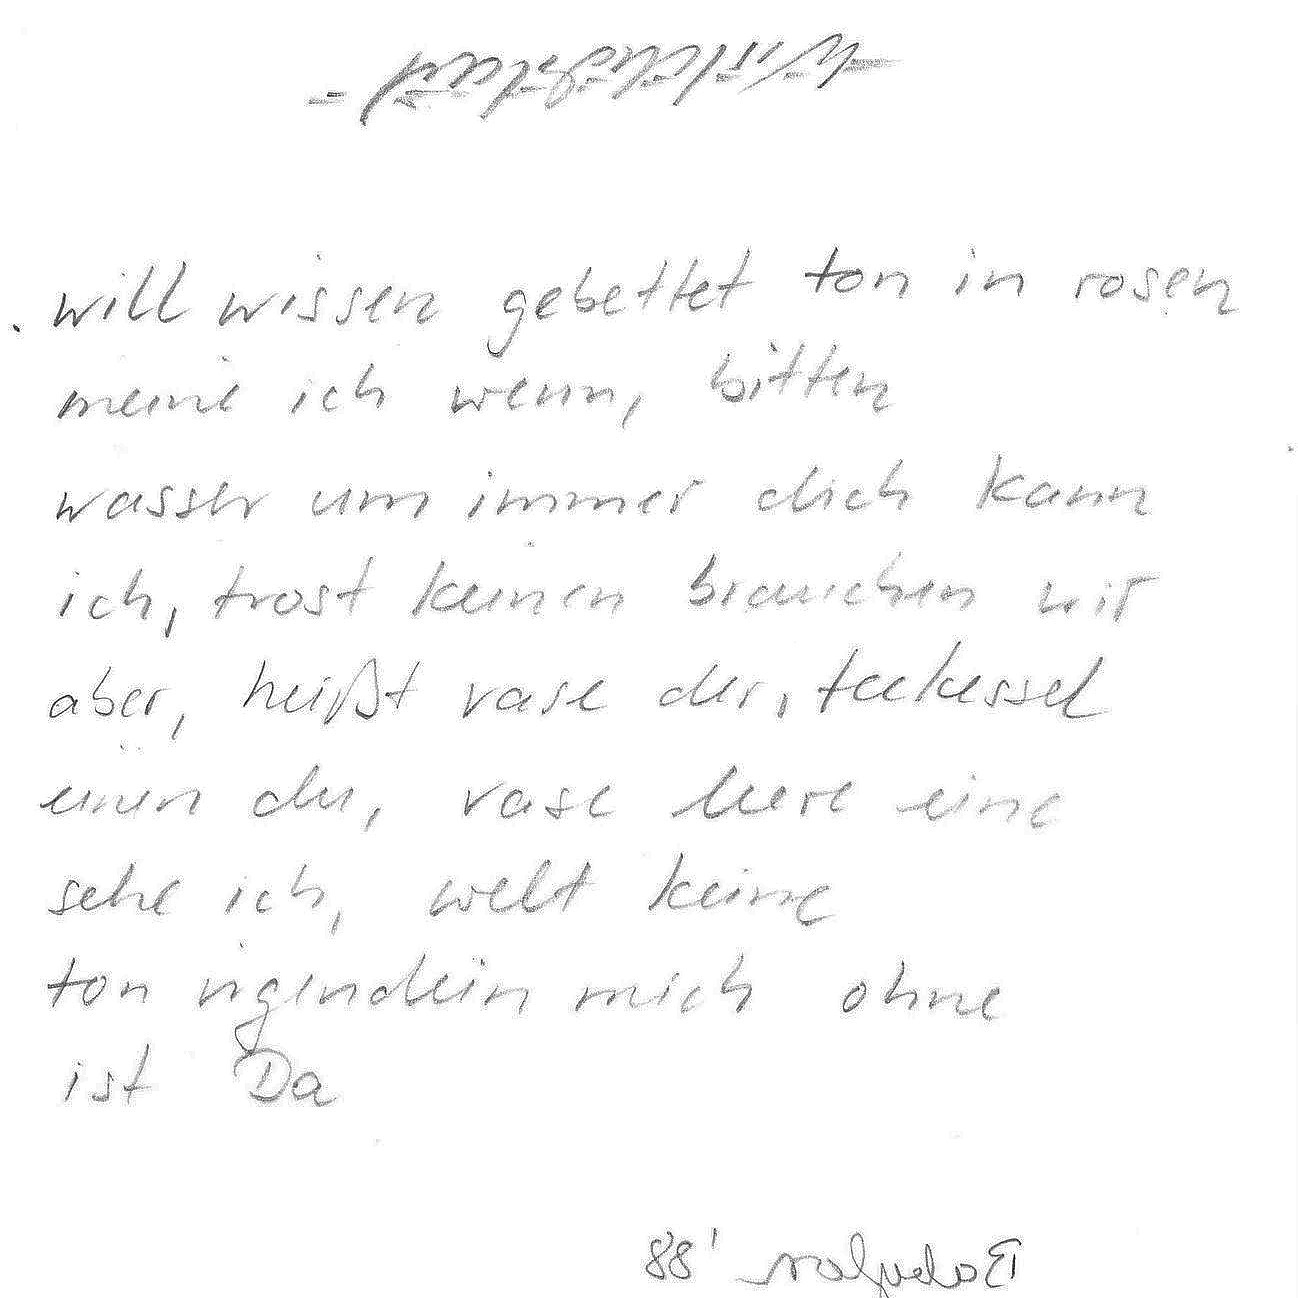 .will wissen gebettet ton in rosen
meine ich wenn, bitten
wasser um immer dich kann
ich, trost keinen brauchen wir
aber, heißt vase der, teekessel
einen der, vase leere eine
sehe ich, welt keine
ton irgendein mich ohne
ist Da
'88